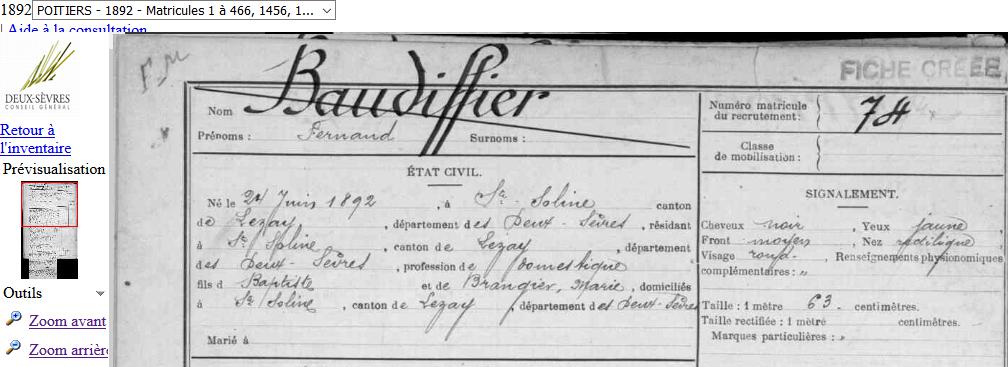 1892 POITIERS - 1892 - Matricules 1 à 466, 1456, 1...
| Aide à la consultation
DEUX-SÈVRES
CONSEIL GÉNÉRAL
Retour à
l'inventaire
Prévisualisation
Outils
Zoom avant
Zoom arrière
FICHE CRÉÉE
Nom Baudiffier
Prénoms : Fernand Surnoms :
Numéro matricule
du recrutement : 74
Classe
de mobilisation :
ÉTAT CIVIL.
Né le 24 Juin 1892, à Ste Soline canton
de Lezay, département des Deux-Sèvres, résidant
à Ste Soline, canton de Lezay, département
des Deux-Sèvres, profession de domestique
fils d Baptiste et de Brangier, Marie, domiciliés
à Ste Soline, canton de Lezay, département des Deux-Sèvres
Marié à
SIGNALEMENT.
Cheveux noir, Yeux jaune
Front moyen, Nez rectiligne
Visage rond. Renseignements physionomiques
complémentaires : "
Taille : 1 mètre 63. centimètres.
Taille rectifiée : 1 mètre centimètres.
Marques particulières : "